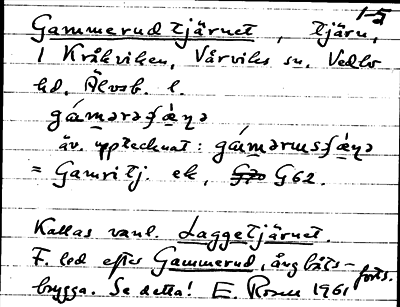 1-5
Gammerudtjärnet, tjärn,
i Kråkviken, Vårviks sn, Vedbo
hd, Älvsb. l.
gámərəʃɛ̀ŋə
äv. upptecknat: gámərusʃɛ̀ŋə
= Gamritj. ek, G62.
Kallas vanl. Laggetjärnet.
F. led efter Gammerud, ångbåts-
brygga. Se detta! E. Rosen 1961 forts.